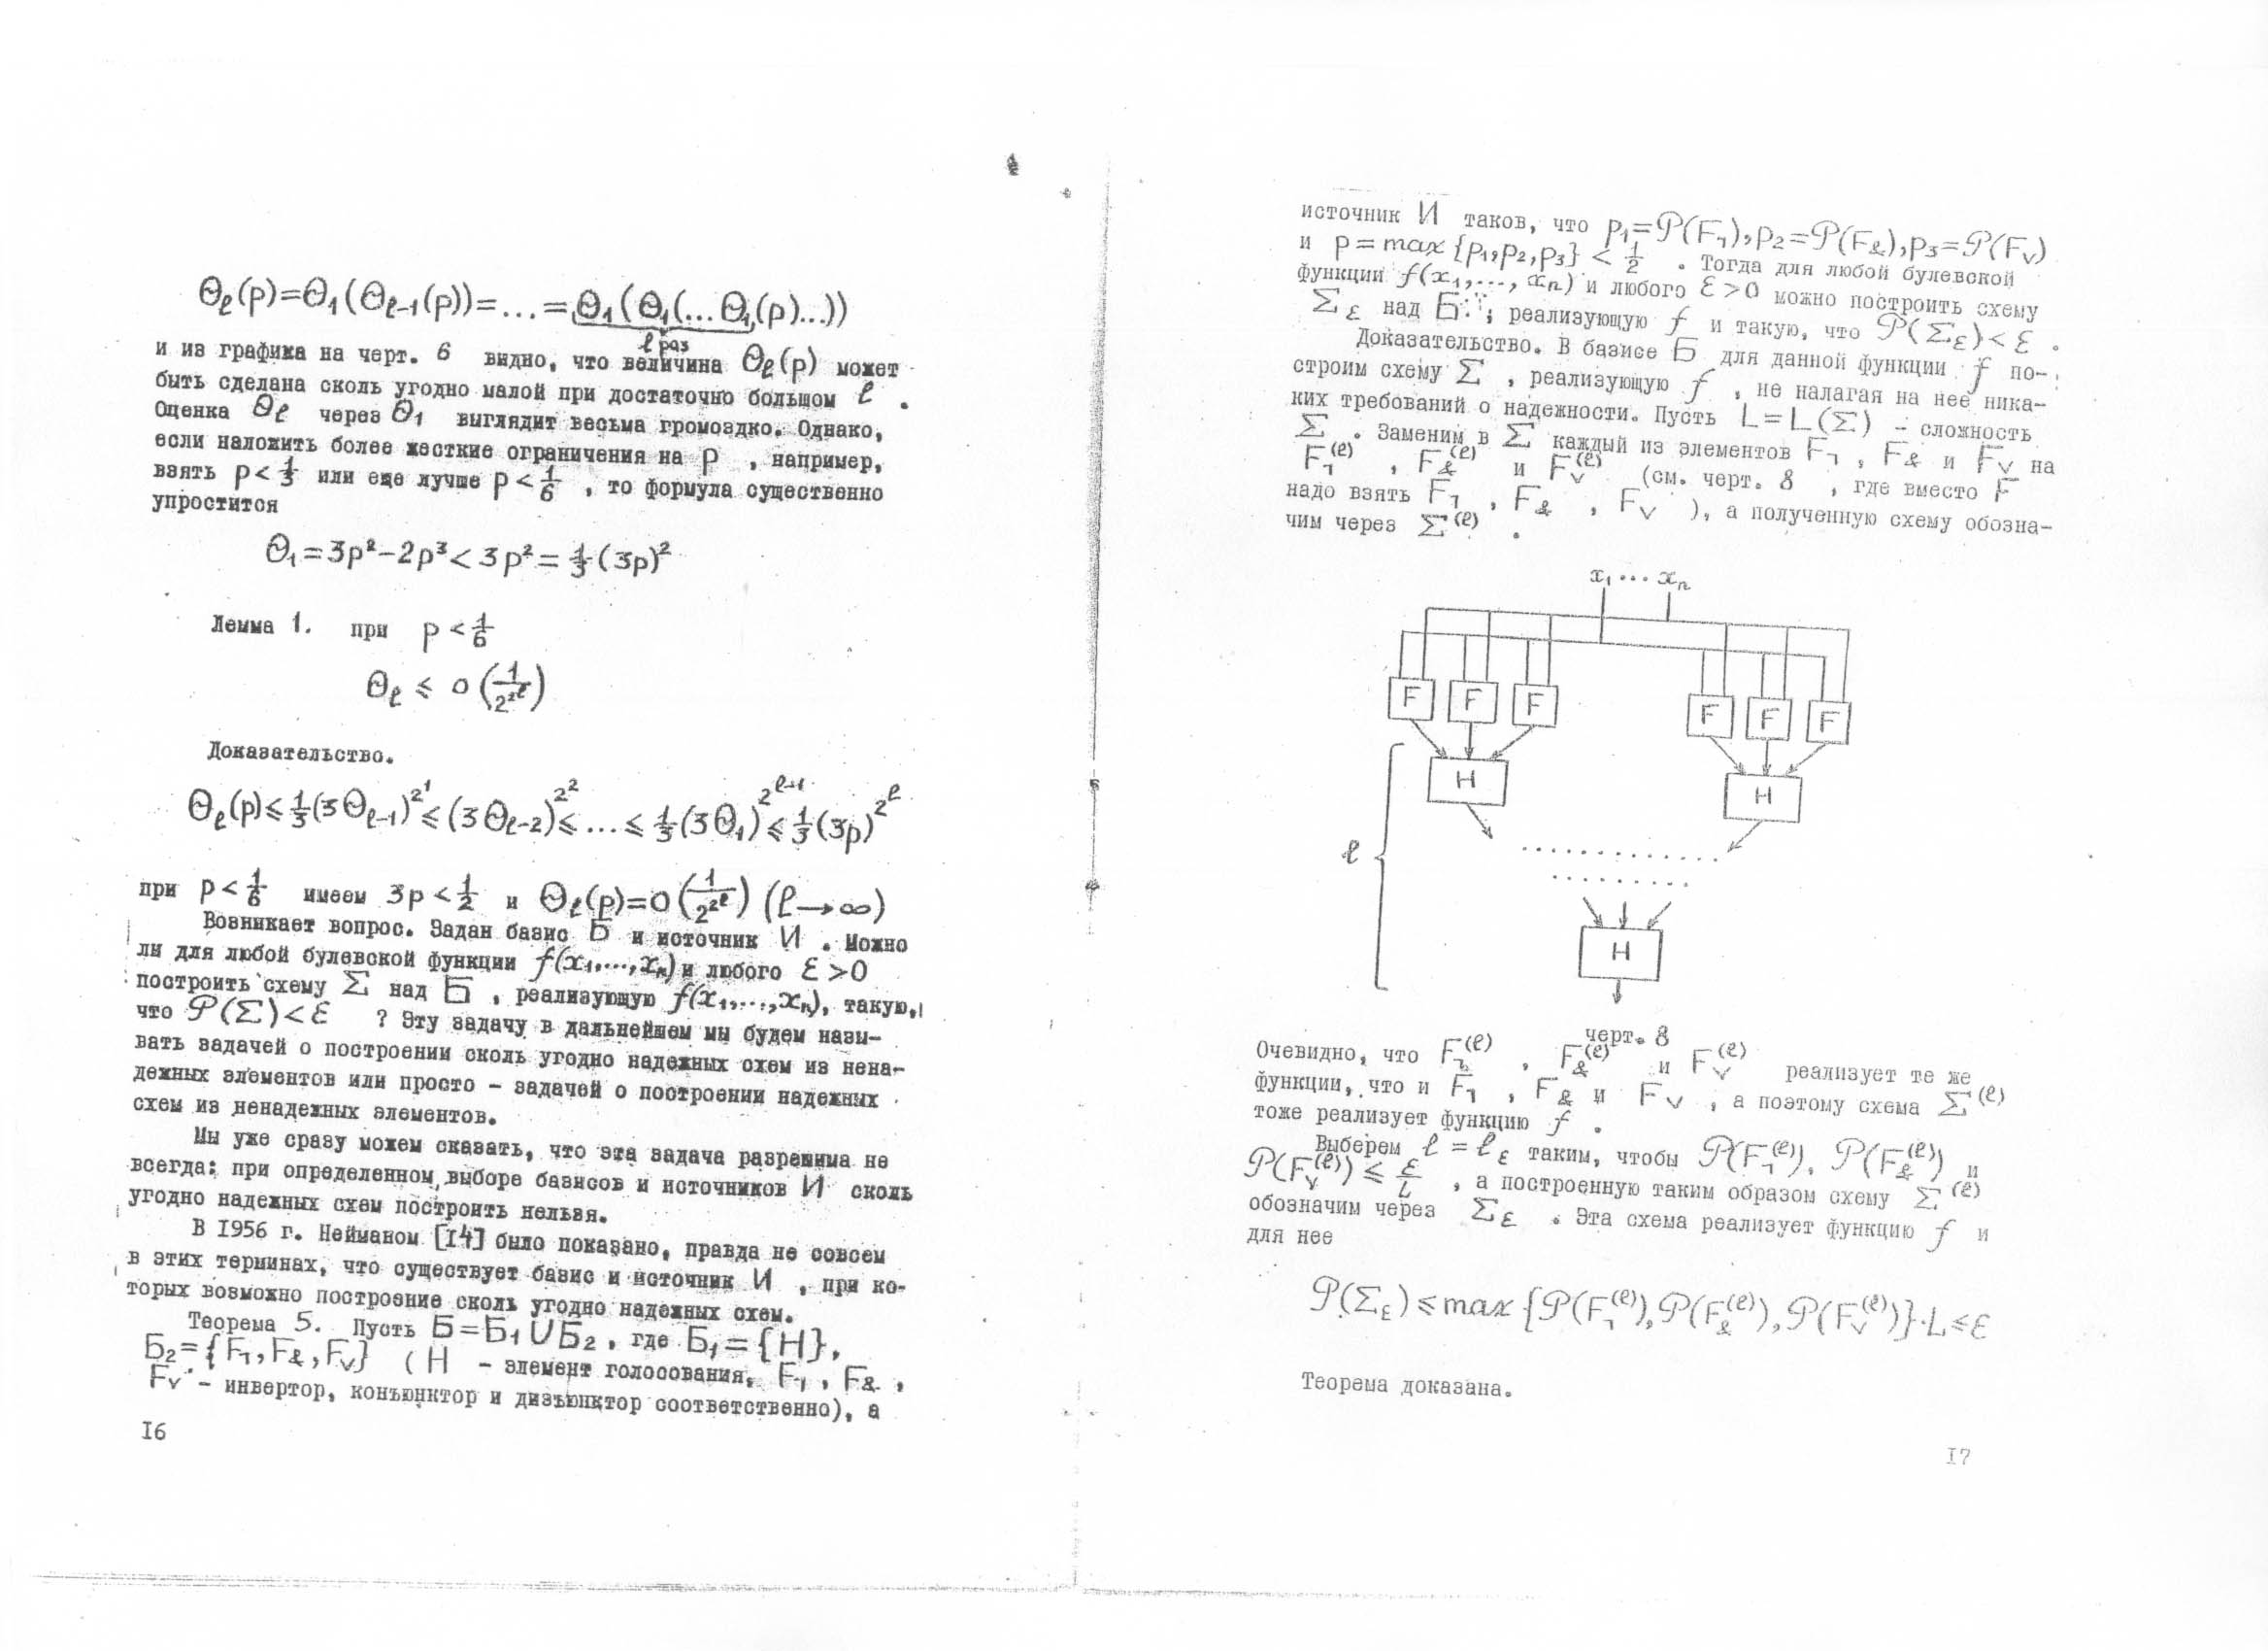 Θℓ(p)=Θ₁(Θℓ₋₁(p))=...=Θ₁(Θ₁(...Θ₁(p)...))
ℓ раз
и из графика на черт. 6 видно, что величина Θℓ(p) может
быть сделана сколь угодно малой при достаточно большом ℓ .
Оценка Θℓ через Θ₁ выглядит весьма громоздко. Однако,
если наложить более жесткие ограничения на p , например,
взять p < 1/3 или еще лучше p < 1/6 , то формула существенно
упростится
Θ₁=3p²−2p³<3p²=1/3(3p)²
Лемма 1. при p < 1/6
Θℓ ⩽ o(1/2^(2^ℓ))
Доказательство.
Θℓ(p)⩽1/3(3Θℓ₋₁)^(2^1)⩽(3Θℓ₋₂)^(2^2)⩽...⩽1/3(3Θ₁)^(2^(ℓ-1))⩽1/3(3p)^(2^ℓ)
при p < 1/6 имеем 3p < 1/2 и Θℓ(p)=o(1/2^(2^ℓ)) (ℓ→∞)
Возникает вопрос. Задан базис Б и источник И . Можно
ли для любой булевской функции f(x₁,...,xₙ) и любого ℰ>0
построить схему Σ над Б , реализующую f(x₁,...,xₙ), такую,
что 𝒫(Σ)<ℰ ? Эту задачу в дальнейшем мы будем назы-
вать задачей о построении сколь угодно надежных схем из нена-
дежных элементов или просто - задачей о построении надежных
схем из ненадежных элементов.
Мы уже сразу можем сказать, что эта задача разрешима не
всегда: при определенном выборе базисов и источников И сколь
угодно надежных схем построить нельзя.
В 1956 г. Нейманом [14] было показано, правда не совсем
в этих терминах, что существует базис и источник И , при ко-
торых возможно построение сколь угодно надежных схем.
Теорема 5. Пусть Б=Б₁∪Б₂, где Б₁={H},
Б₂={F¬,F&,F∨} ( H - элемент голосования, F¬ , F& ,
F∨ - инвертор, конъюнктор и дизъюнктор соответственно), а
16
источник И таков, что p₁=𝒫(F¬),p₂=𝒫(F&),p₃=𝒫(F∨)
и p=max{p₁,p₂,p₃} < 1/2 . Тогда для любой булевской
функции f(x₁,...,xₙ) и любого ℰ>0 можно построить схему
Σℰ над Б , реализующую f и такую, что 𝒫(Σℰ)<ℰ .
Доказательство. В базисе Б для данной функции f по-
строим схему Σ , реализующую f , не налагая на нее ника-
ких требований о надежности. Пусть L=L(Σ) - сложность
Σ . Заменим в Σ каждый из элементов F¬ , F& и F∨ на
F¬^(ℓ) , F&^(ℓ) и F∨^(ℓ) (см. черт. 8 , где вместо F
надо взять F¬ , F& , F∨ ), а полученную схему обозна-
чим через Σ^(ℓ) .
x₁ ... xₙ
F F F F F F
H H
ℓ
H
черт. 8
Очевидно, что F¬^(ℓ) , F&^(ℓ) и F∨^(ℓ) реализует те же
функции, что и F¬ , F& и F∨ , а поэтому схема Σ^(ℓ)
тоже реализует функцию f .
Выберем ℓ = ℓℰ таким, чтобы 𝒫(F¬^(ℓ)), 𝒫(F&^(ℓ)) и
𝒫(F∨^(ℓ)) ⩽ ℰ/L , а построенную таким образом схему Σ^(ℓ)
обозначим через Σℰ . Эта схема реализует функцию f и
для нее
𝒫(Σℰ)⩽max{𝒫(F¬^(ℓ)),𝒫(F&^(ℓ)),𝒫(F∨^(ℓ))}·L⩽ℰ
Теорема доказана.
17